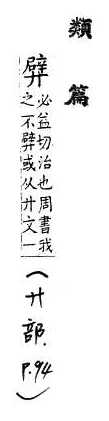 類篇
必益切治也周書我
之不或从廾文一
(廾部. P.94)